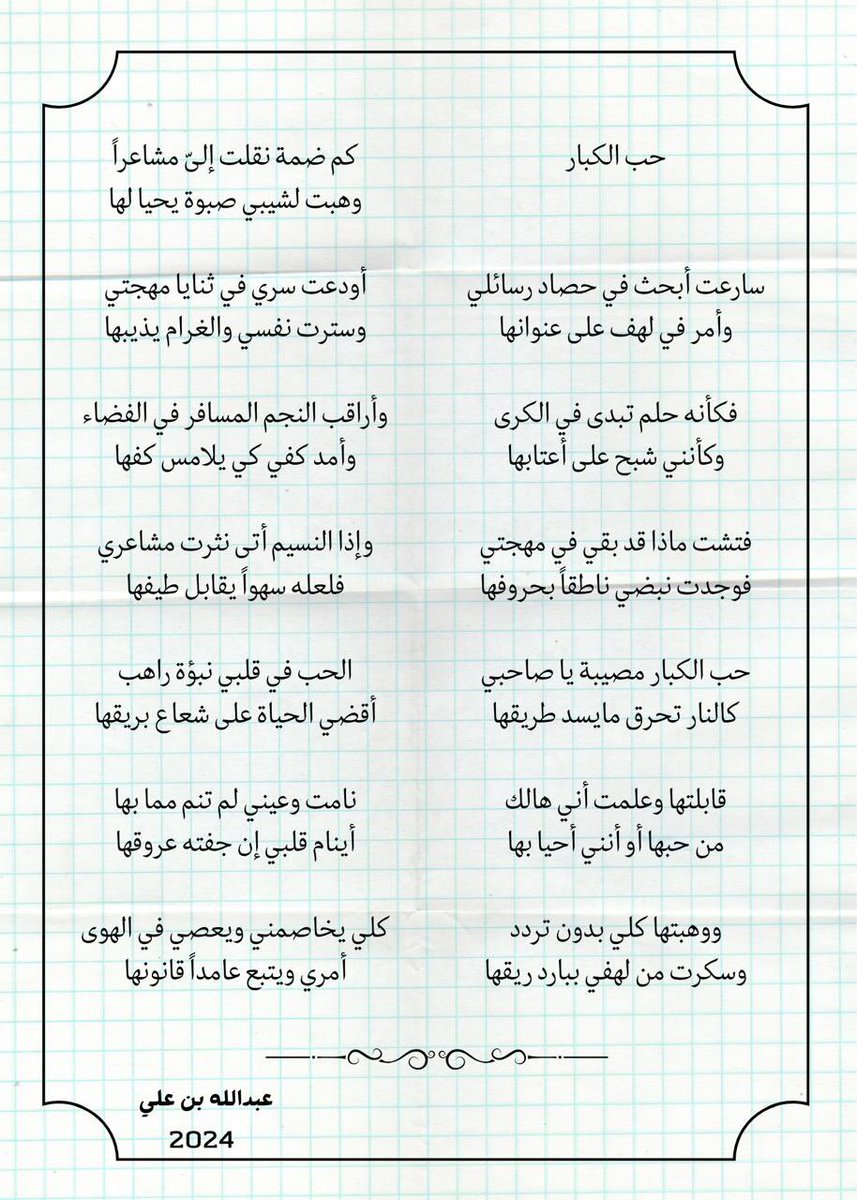 حب الكبار
سارعت أبحث في حصاد رسائلي
وأمر في لهف على عنوانها
فكأنه حلم تبدى في الكرى
وكأنني شبح على أعتابها
فتشت ماذا قد بقي في مهجتي
فوجدت نبضي ناطقاً بحروفها
حب الكبار مصيبة يا صاحبي
كالنار تحرق مايسد طريقها
قابلتها وعلمت أني هالك
من حبها أو أنني أحيا بها
ووهبتها كلي بدون تردد
وسكرت من لهفي ببارد ريقها
كم ضمة نقلت إليّ مشاعراً
وهبت لشيبي صبوة يحيا لها
أودعت سري في ثنايا مهجتي
وسترت نفسي والغرام يذيبها
وأراقب النجم المسافر في الفضاء
وأمد كفي كي يلامس كفها
وإذا النسيم أتى نثرت مشاعري
فلعله سهواً يقابل طيفها
الحب في قلبي نبؤة راهب
أقضي الحياة على شعاع بريقها
نامت وعيني لم تنم مما بها
أينام قلبي إن جفته عروقها
كلي يخاصمني ويعصي في الهوى
أمري ويتبع عامداً قانونها
عبدالله بن علي
2024